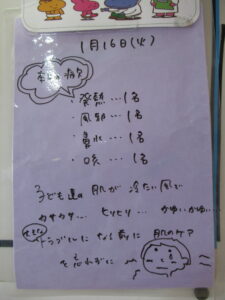 1月16日(火)
今日の病欠
・発熱…1名
・風邪…1名
・鼻水…1名
・咳…1名
子ども達の肌が冷たい風で
カサカサ… ヒリヒリ… かゆいかゆい…
トラブルになる前に肌のケア
を忘れずに